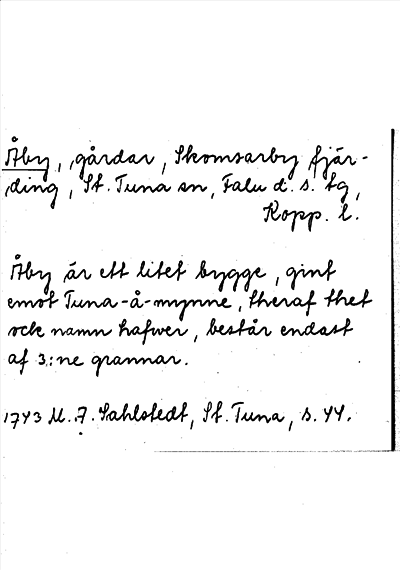 Åby, gårdar, Skomsarby fjär-
ding, St. Tuna sn, Falu d. s. tg,
Kopp. l.
Åby är ett litet bygge, gint
emot Tuna-å-mynne, theraf thet
ock namn hafwer, består endast
af 3:ne grannar.
1743 M. F. Sahlstedt, St. Tuna, s. 44.